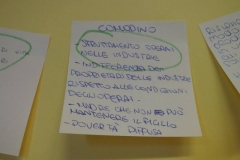 COMODINO
SFRUTTAMENTO OPERAI
NELLE INDUSTRIE
- INDIFFERENZA DEI
PROPRIETARI DELLE INDUSTRIE
RISPETTO ALLE CONDIZIONI
DEGLI OPERAI.
- MADRE CHE NON PUÒ
MANTENERE IL FIGLIO
- POVERTÀ DIFFUSA